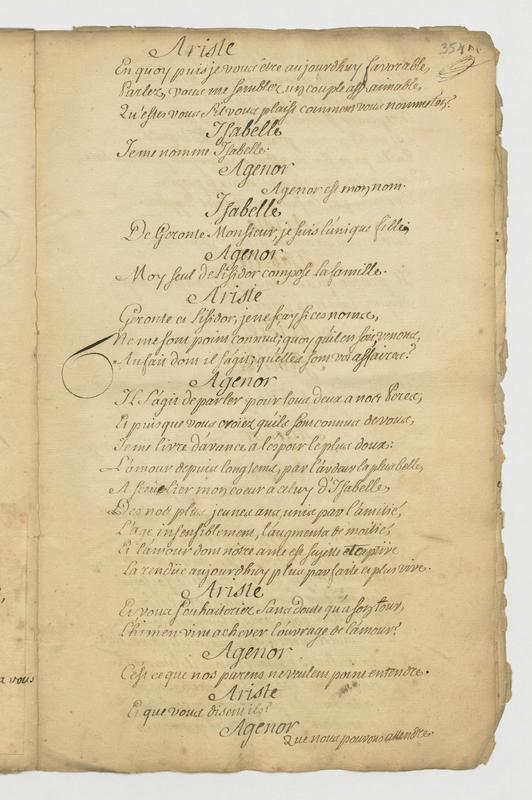 354
Ariste
En quoy puis je vous être aujourdhuy favorable,
Parlez, vous me semblez un couple assé aimable,
Qu'estes vous s'il vous plaist comment vous nomme t'on?
Isabelle
Je me nomme Isabelle.
Agenor
Agenor est mon nom.
Isabelle
De Geronte Monsieur, je suis l'unique fille,
Agenor
Moy seul de Lisidor compose la famille.
Ariste
Geronte et Lisidor, je ne sçay si ces noms,
Ne me sont point connus; quoy qu'il en soit venons,
Au fait dont il s'agit; quelles sont vos affaires?
Agenor
Il s'agit de parler pour tous deux a nos Peres,
Et puisque vous croiez qu'ils sont connus de vous,
Je me livre d'avance a l'espoir le plus doux:
L'amour depuis longtems, par l'ardeur la plus belle,
A sceu lier mon coeur a celuy d'Isabelle,
Des nos plus jeunes ans, unis par l'amitié,
L'age insensiblement, l'augmenta de moitié,
Et l'amour dont nôtre ame est sujette et captive
La rendüe aujourdhuy plus parfaite et plus vive.
Ariste
Et vous souhaiteriez sans doute qu'a son tour,
L'himen vint achever l'ouvrage de l'amour?
Agenor
C'est ce que nos parens ne veulent point entendre.
Ariste
Et que vous disent ils?
Agenor
Que nous pouvons attendre.
a vous